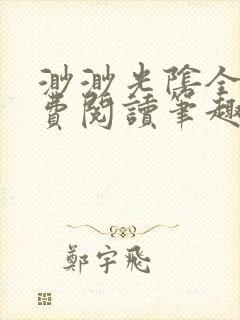 渺渺光陰全
費閱讀筆趣
鄭宇飛